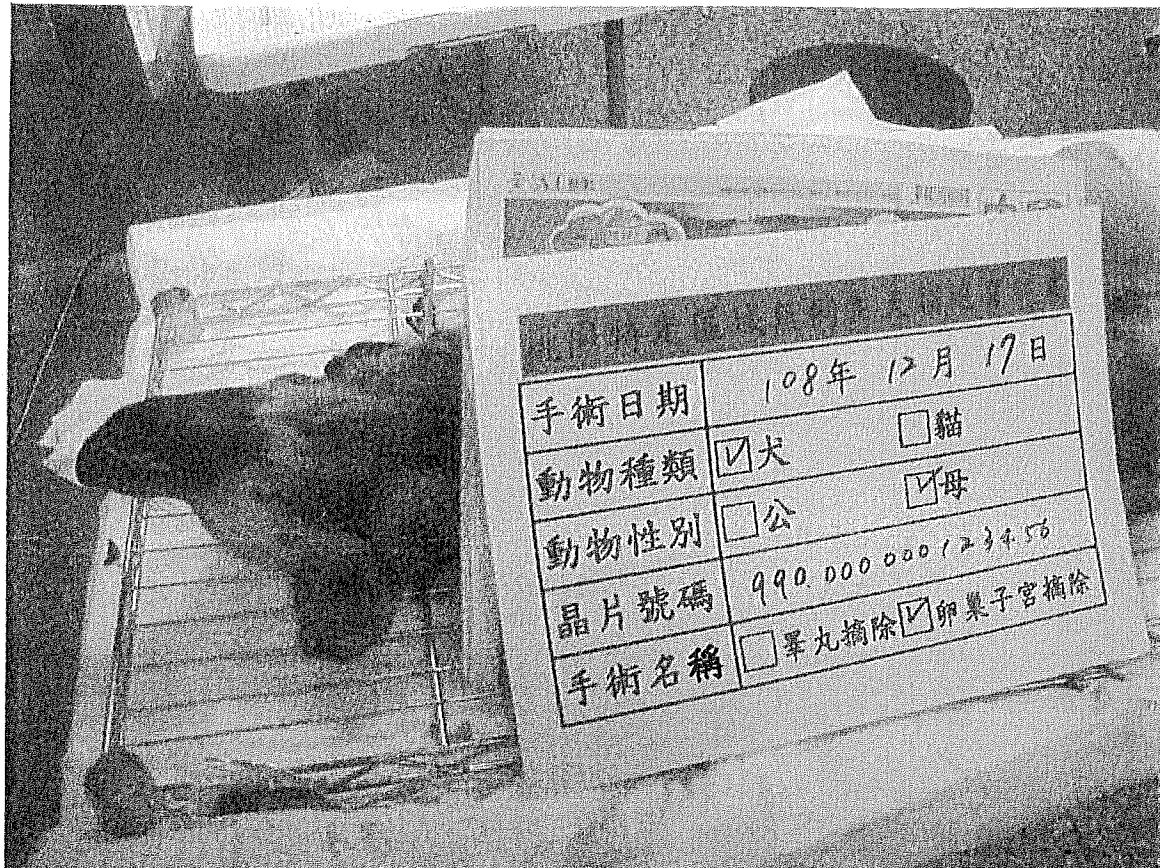 手術日期 108年 12月 17日
動物種類 ☑犬 ☐貓
動物性別 ☐公 ☑母
晶片號碼 990.000000123456
手術名稱 ☐睪丸摘除 ☑卵巢子宮摘除